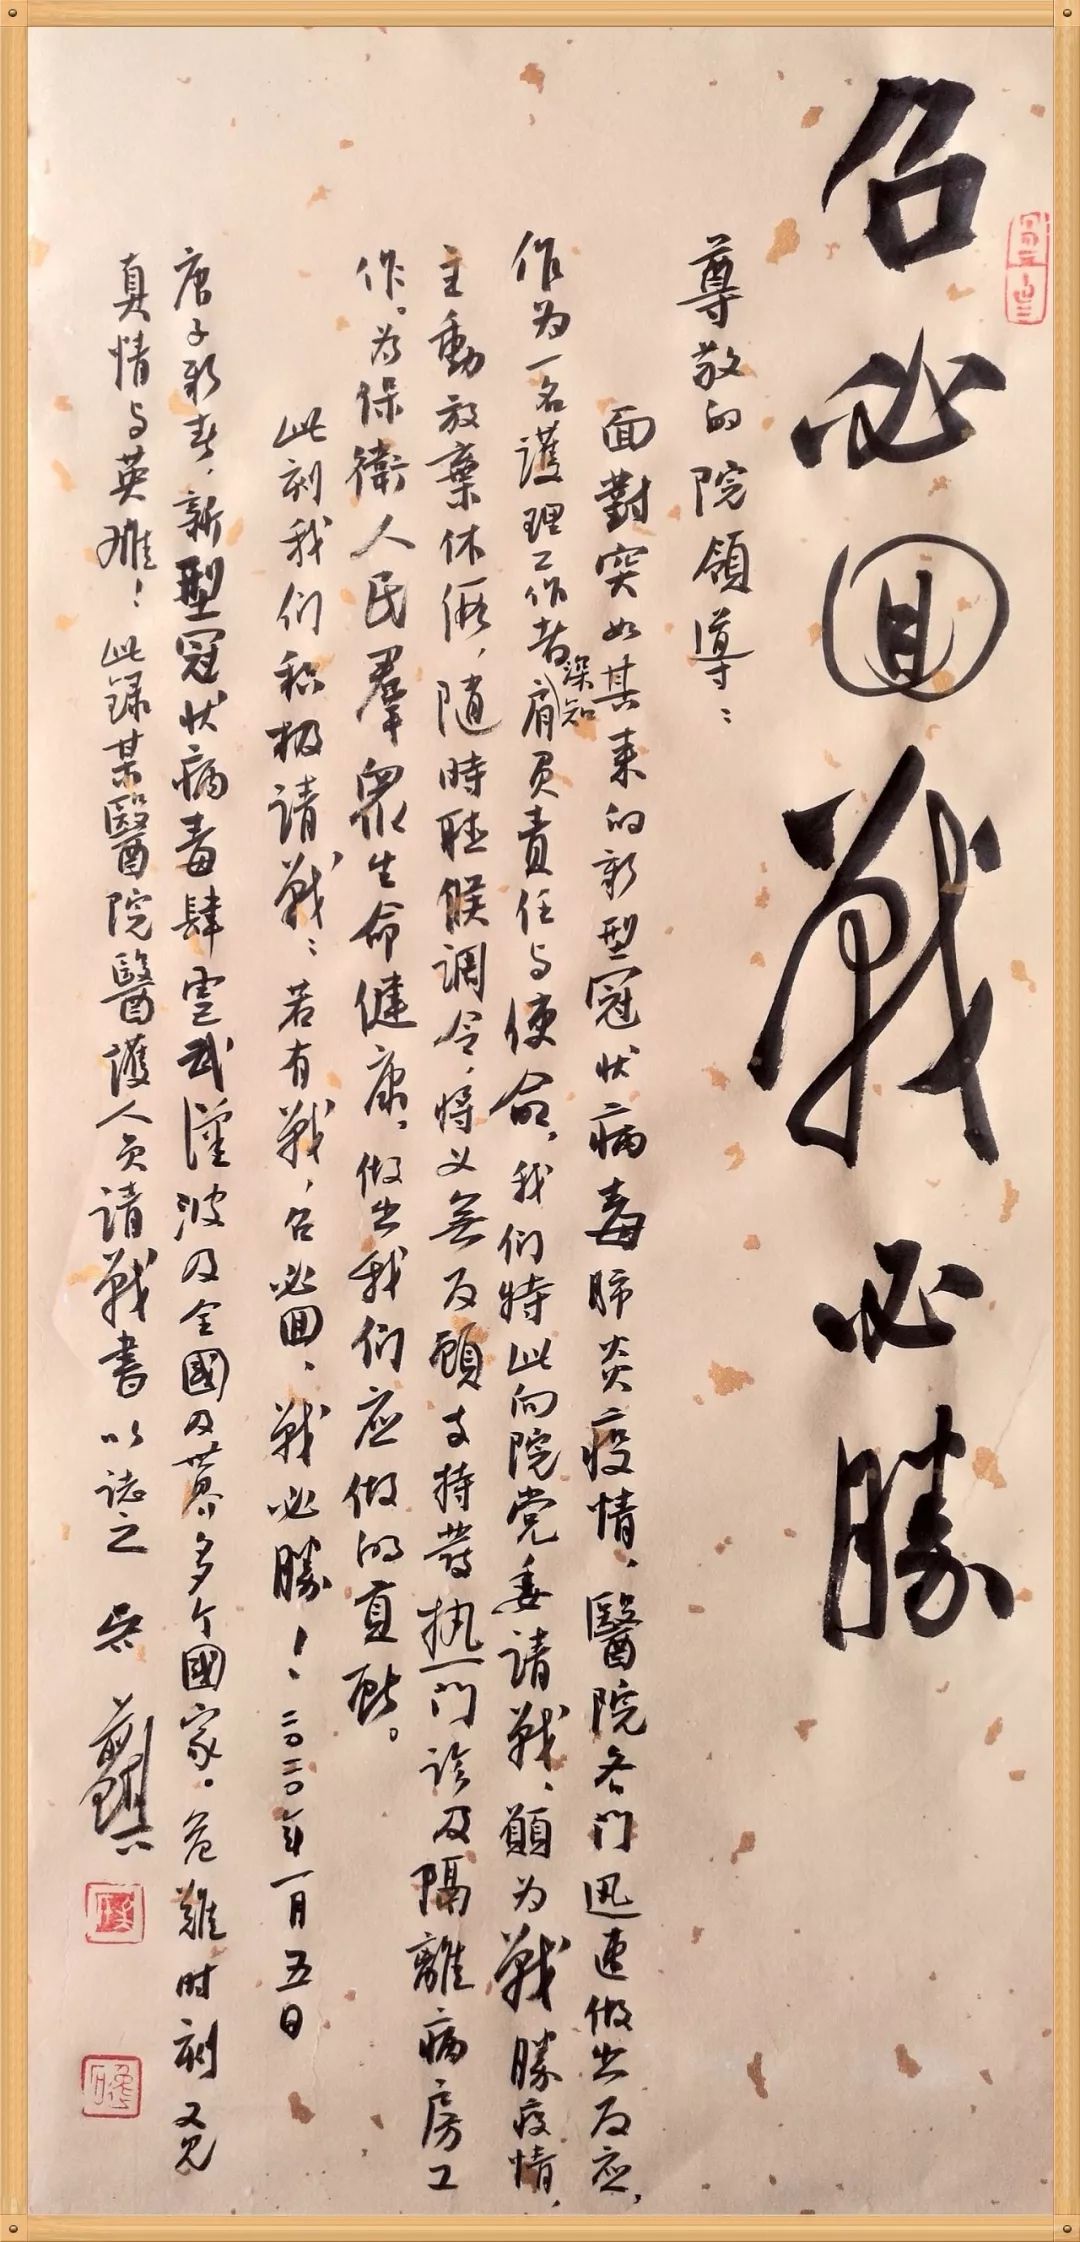 召必回戰必勝
尊敬的院領導：
面對突如其来的新型冠状病毒肺炎疫情、醫院各门迅速做出反应，
作为一名護理工作者深知肩負責任与使命，我们特此向院党委請戰、願为戰勝疫情，
主動放棄休假，随時聴候調令，将义無反顧支持发热门診及隔離病房工
作。为保衛人民羣眾生命健康，做出我们应做的貢献。
此刻我们积极请戰：若有戰，召必回、戰必勝！二〇二〇年一月五日
庚子新春，新型冠状病毒肆虐武漢波及全國及世界多个國家。危難时刻又見
真情与英雄！此録某醫院醫護人员請戰書以誌之